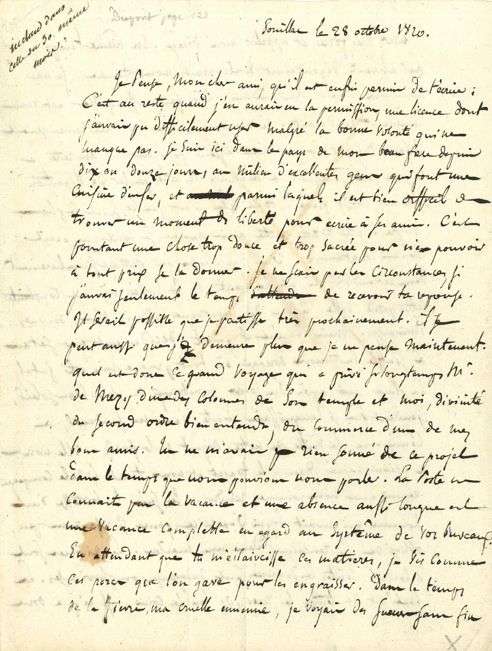 inclus dans
celle du 30 même
mois.
Dupont page 12
Souillac le 28 octobre 1820.
Je pense, mon cher ami, qu'il est enfin permis de t'écrire ;
C'est au reste quand j'en aurais eu la permission une licence dont
j'aurais pu difficilement user malgré la bonne volonté qui ne
manque pas. Je suis ici dans le pays de mon beau frère depuis
dix ou douze jours, au milieu d'excellentes gens qui font une
Cuisine d'enfer, et parmi lesquels il est bien difficile de
trouver un moment de liberté pour écrire à ses amis. C'est
pourtant une chose trop douce et trop sacrée pour n'en pouvoir
à tout prix se la donner. Je ne sais par les circonstances si
j'aurai seulement le temps de recevoir ta reponse.
Il serait possible que je partisse très prochainement. il se
peut aussi que je Demeure plus que je ne pense maintenant.
quel est donc ce grand voyage qui a privé si longtemps Mr.
de Mezy d'une des Colonnes de son temple et moi, divinité
du second ordre bien entendu, du Commerce d'un de mes
bons amis. Tu ne m'avais rien sonné de ce projet
dans le temps que nous pouvions nous parler. La Poste ne
connait pas la vacance et une absence aussi longue est
une Vacance complette en egard au Système de vos Bureaux
En attendant que tu m'éclaircisse ces matieres, je vis comme
ces porcs que l'on gave pour les engraisser. Dans le temps
de la fievre, ma cruelle ennemie, je voyais des sans fin